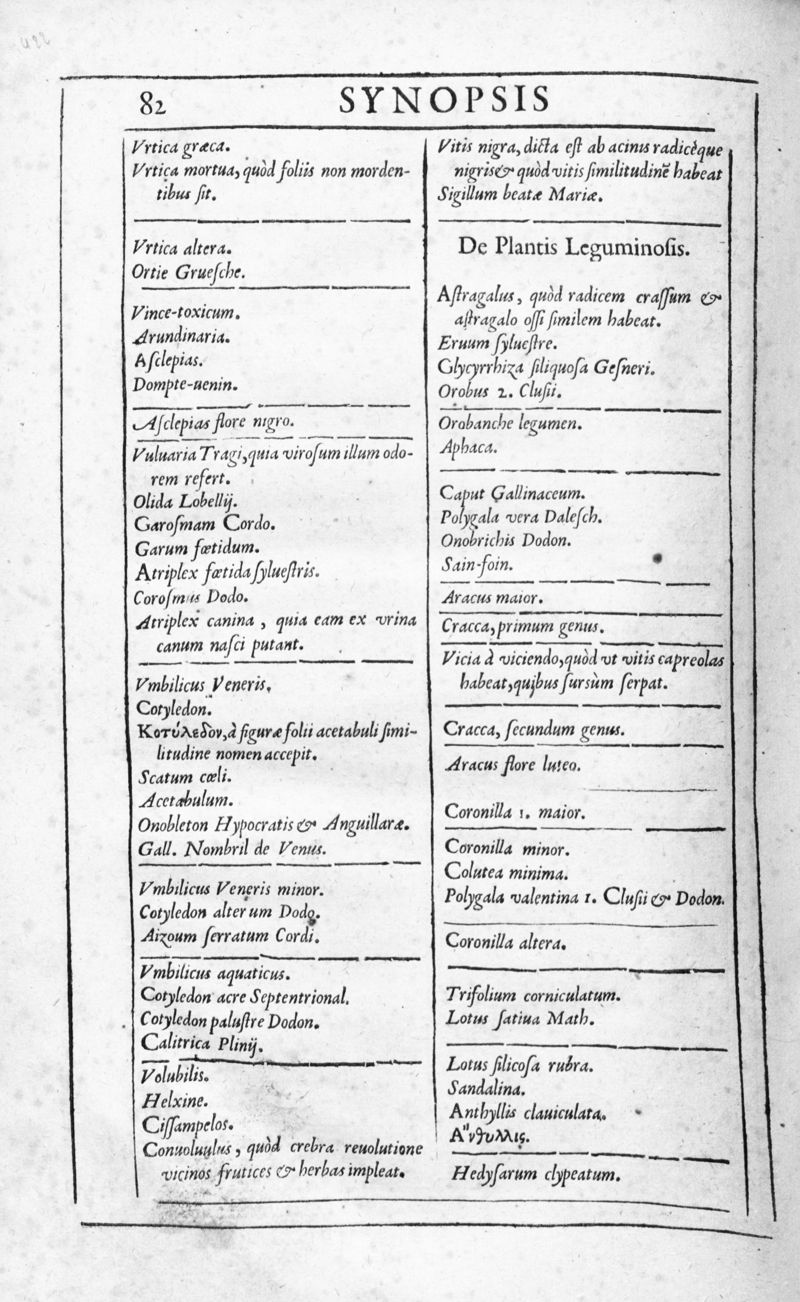 82
SYNOPSIS
Vrtica græca.
Vrtica mortua, quòd foliis non morden-
tibus ſit.
Vrtica altera.
Ortie Grueſche.
Vince-toxicum.
Arundinaria.
Aſclepias.
Dompte-uenin.
Aſclepias flore nigro.
Vuluaria Tragi, quia viroſum illum odo-
rem refert.
Olida Lobellij.
Garoſmam Cordo.
Garum fœtidum.
Atriplex fœtida ſylueſtris.
Coroſmus Dodo.
Atriplex canina, quia eam ex vrina
canum naſci putant.
Vmbilicus Veneris.
Cotyledon.
Κοτύλεδον, à figuræ folii acetabuli ſimi-
litudine nomen accepit.
Scatum cœli.
Acetabulum.
Onobleton Hypocratis & Anguillaræ.
Gall. Nombril de Venus.
Vmbilicus Veneris minor.
Cotyledon alterum Dodo.
Aizoum ſerratum Cordi.
Vmbilicus aquaticus.
Cotyledon acre Septentrional.
Cotyledon paluſtre Dodon.
Calitrica Plinij.
Volubilis.
Helxine.
Ciſſampelos.
Conuoluulus, quòd crebra reuolutione
vicinos frutices & herbas impleat.
Vitis nigra, dicta eſt ab acinis radicéque
nigris & quòd vitis ſimilitudinē habeat
Sigillum beatæ Mariæ.
De Plantis Leguminoſis.
Aſtragalus, quòd radicem craſſum &
aſtragalo oſſi ſimilem habeat.
Eruum ſylueſtre.
Glycyrrhiza ſiliquoſa Geſneri.
Orobus 2. Cluſii.
Orobanche legumen.
Aphaca.
Caput Gallinaceum.
Polygala vera Daleſch.
Onobrichis Dodon.
Sain-foin.
Aracus maior.
Cracca, primum genus.
Vicia à viciendo, quòd vt vitis capreolas
habeat, quibus ſursùm ſerpat.
Cracca, ſecundum genus.
Aracus flore luteo.
Coronilla 1. maior.
Coronilla minor.
Colutea minima.
Polygala valentina 1. Cluſii & Dodon.
Coronilla altera.
Trifolium corniculatum.
Lotus ſatiua Math.
Lotus ſilicoſa rubra.
Sandalina.
Anthyllis clauiculata.
Ἄνθυλλις.
Hedyſarum clypeatum.